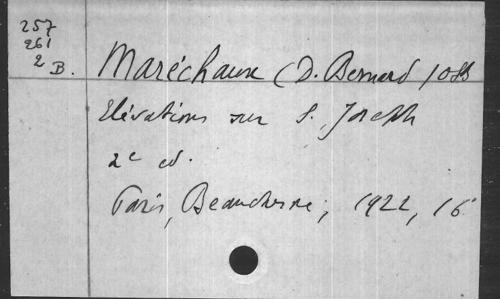 257
261
2 B.
Maréchaux (D. Bernard) OSB
Elévations sur S. Joseph
2e ed.
Paris, Beauchesne, 1922, 16°